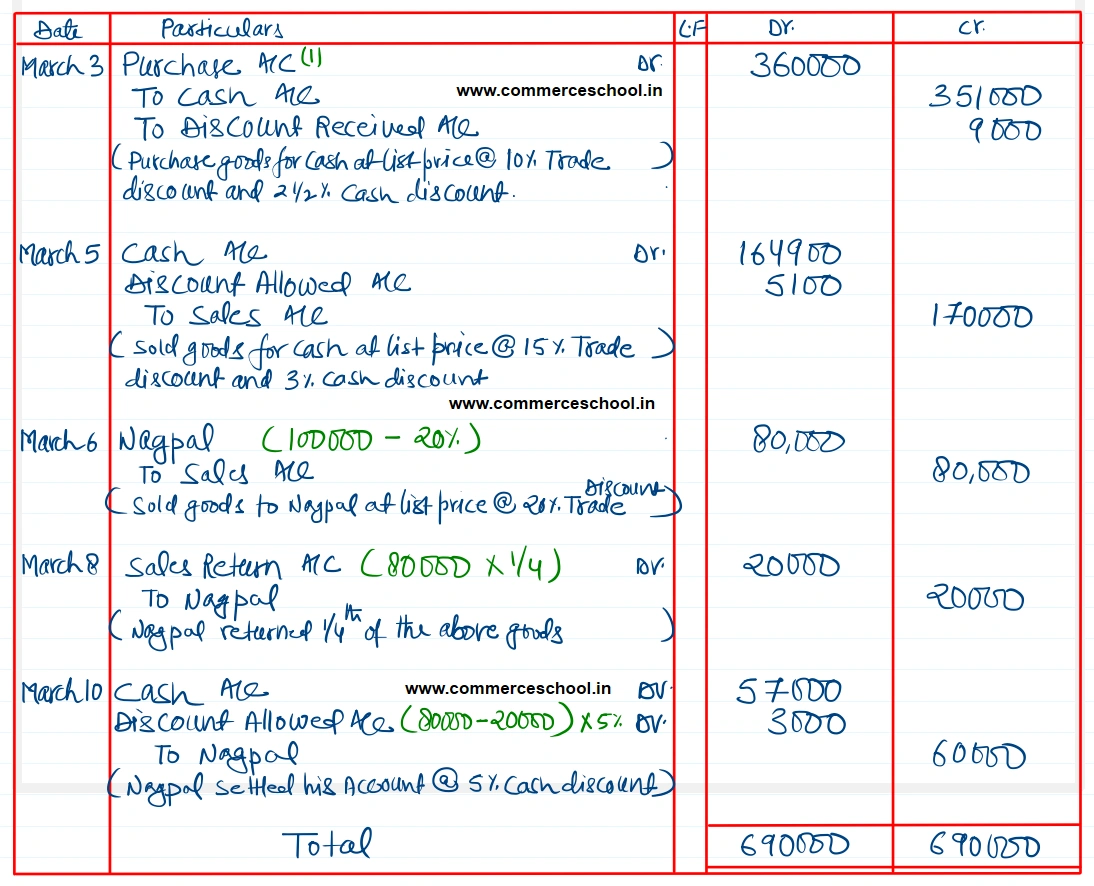 Date Particulars L.F Dr. Cr.
March 3 Purchase A/C (1) Dr. 360000
To Cash A/c www.commerceschool.in 351000
To Discount Received A/c 9000
(Purchase goods for cash at list price @ 10% Trade )
discount and 2 1/2% Cash discount.
March 5 Cash A/c Dr. 164900
Discount Allowed A/c 5100
To Sales A/c 170000
(Sold goods for cash at list price @ 15% Trade )
discount and 3% cash discount
www.commerceschool.in
March 6 Nagpal (100000 - 20%) 80,000
To Sales A/c 80,000
(Sold goods to Nagpal at list price @ 20% Trade Discount)
March 8 Sales Return A/C (80000 X 1/4) Dr. 20000
To Nagpal 20000
(Nagpal returned 1/4th of the above goods )
March 10 Cash A/c www.commerceschool.in Dr. 57000
Discount Allowed A/c (80000-20000) X 5% Dr. 3000
To Nagpal 60000
(Nagpal settled his Account @ 5% Cash discount)
Total 690000 690000